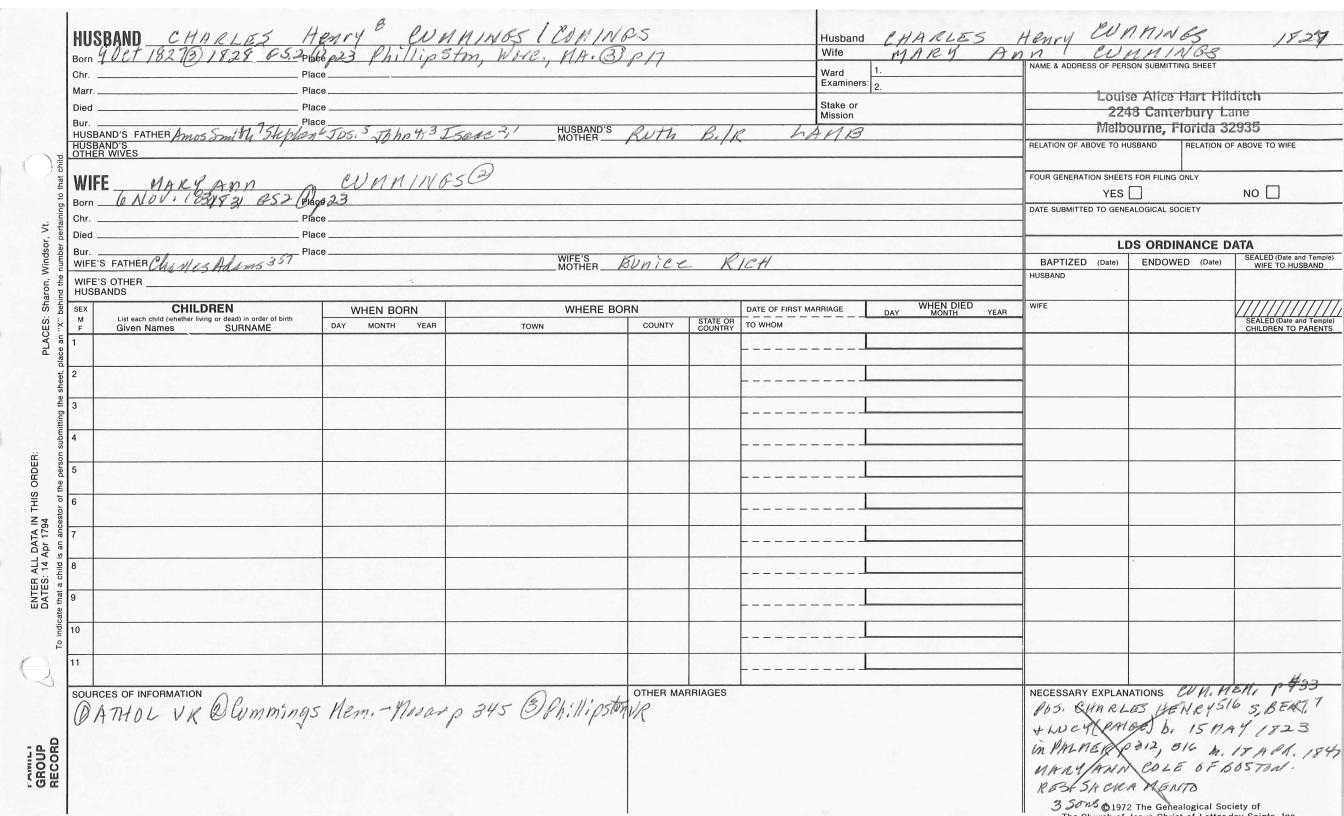 HUSBAND CHARLES Henry 8 CUMMINGS / COMINGS
Husband CHARLES Henry CUMMINGS 1827
Wife MARY Ann CUMMINGS
Born 9 Oct 1827 ③ 1828 GS2 Place p23 Phillipston, Worc., MA. ③ p17
Chr. Place
Marr. Place
Died Place
Bur. Place
Ward Examiners: 1.
2.
Stake or Mission
NAME & ADDRESS OF PERSON SUBMITTING SHEET
Louise Alice Hart Hilditch
2248 Canterbury Lane
Melbourne, Florida 32935
HUSBAND'S FATHER Amos Smith 7 Stephen 6 Jos. 5 John 4,3 Isaac 2,1 HUSBAND'S MOTHER Ruth B./R LAMB
HUSBAND'S OTHER WIVES
RELATION OF ABOVE TO HUSBAND RELATION OF ABOVE TO WIFE
WIFE MARY ANN CUMMINGS ②
Born 6 Nov. 1831 GS2 Place p23
Chr. Place
Died Place
Bur. Place
FOUR GENERATION SHEETS FOR FILING ONLY
YES NO
DATE SUBMITTED TO GENEALOGICAL SOCIETY
WIFE'S FATHER Charles Adams 357 WIFE'S MOTHER Eunice RICH
WIFE'S OTHER HUSBANDS
LDS ORDINANCE DATA
BAPTIZED (Date) ENDOWED (Date) SEALED (Date and Temple) WIFE TO HUSBAND
HUSBAND
WIFE
SEALED (Date and Temple) CHILDREN TO PARENTS
SEX M F
CHILDREN
List each child (whether living or dead) in order of birth
Given Names SURNAME
WHEN BORN
DAY MONTH YEAR
WHERE BORN
TOWN COUNTY STATE OR COUNTRY
DATE OF FIRST MARRIAGE
TO WHOM
WHEN DIED
DAY MONTH YEAR
1
2
3
4
5
6
7
8
9
10
11
SOURCES OF INFORMATION
① ATHOL VR ② Cummings Mem.- p 345 ③ Phillipston VR
OTHER MARRIAGES
NECESSARY EXPLANATIONS CUM. MEM. p 433
Pos. CHARLES HENRY 516 S, BENT. 7
+ LUCY (PAIGE) b. 15 MAY 1823
in PALMER p 212, 516 m. 18 APR. 1847
MARY ANN COLE OF BOSTON.
RES SACRAMENTO
3 Sons
©1972 The Genealogical Society of
The Church of Jesus Christ of Latter-day Saints, Inc.
ENTER ALL DATA IN THIS ORDER:
DATES: 14 Apr 1794 PLACES: Sharon, Windsor, Vt.
To indicate that a child is an ancestor of the person submitting the sheet, place an "X" behind the number pertaining to that child.
FAMILY GROUP RECORD